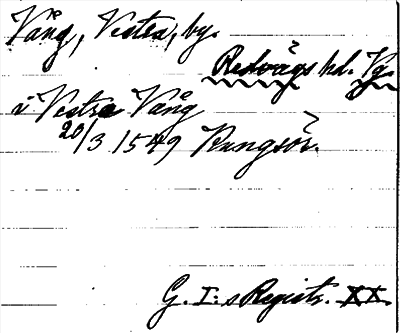 Vång, Vestra, by.
Redvägs hd. Vg.
i Vestra Vång
20/3 1549 Kungsör.
G. I:s Registr. XX